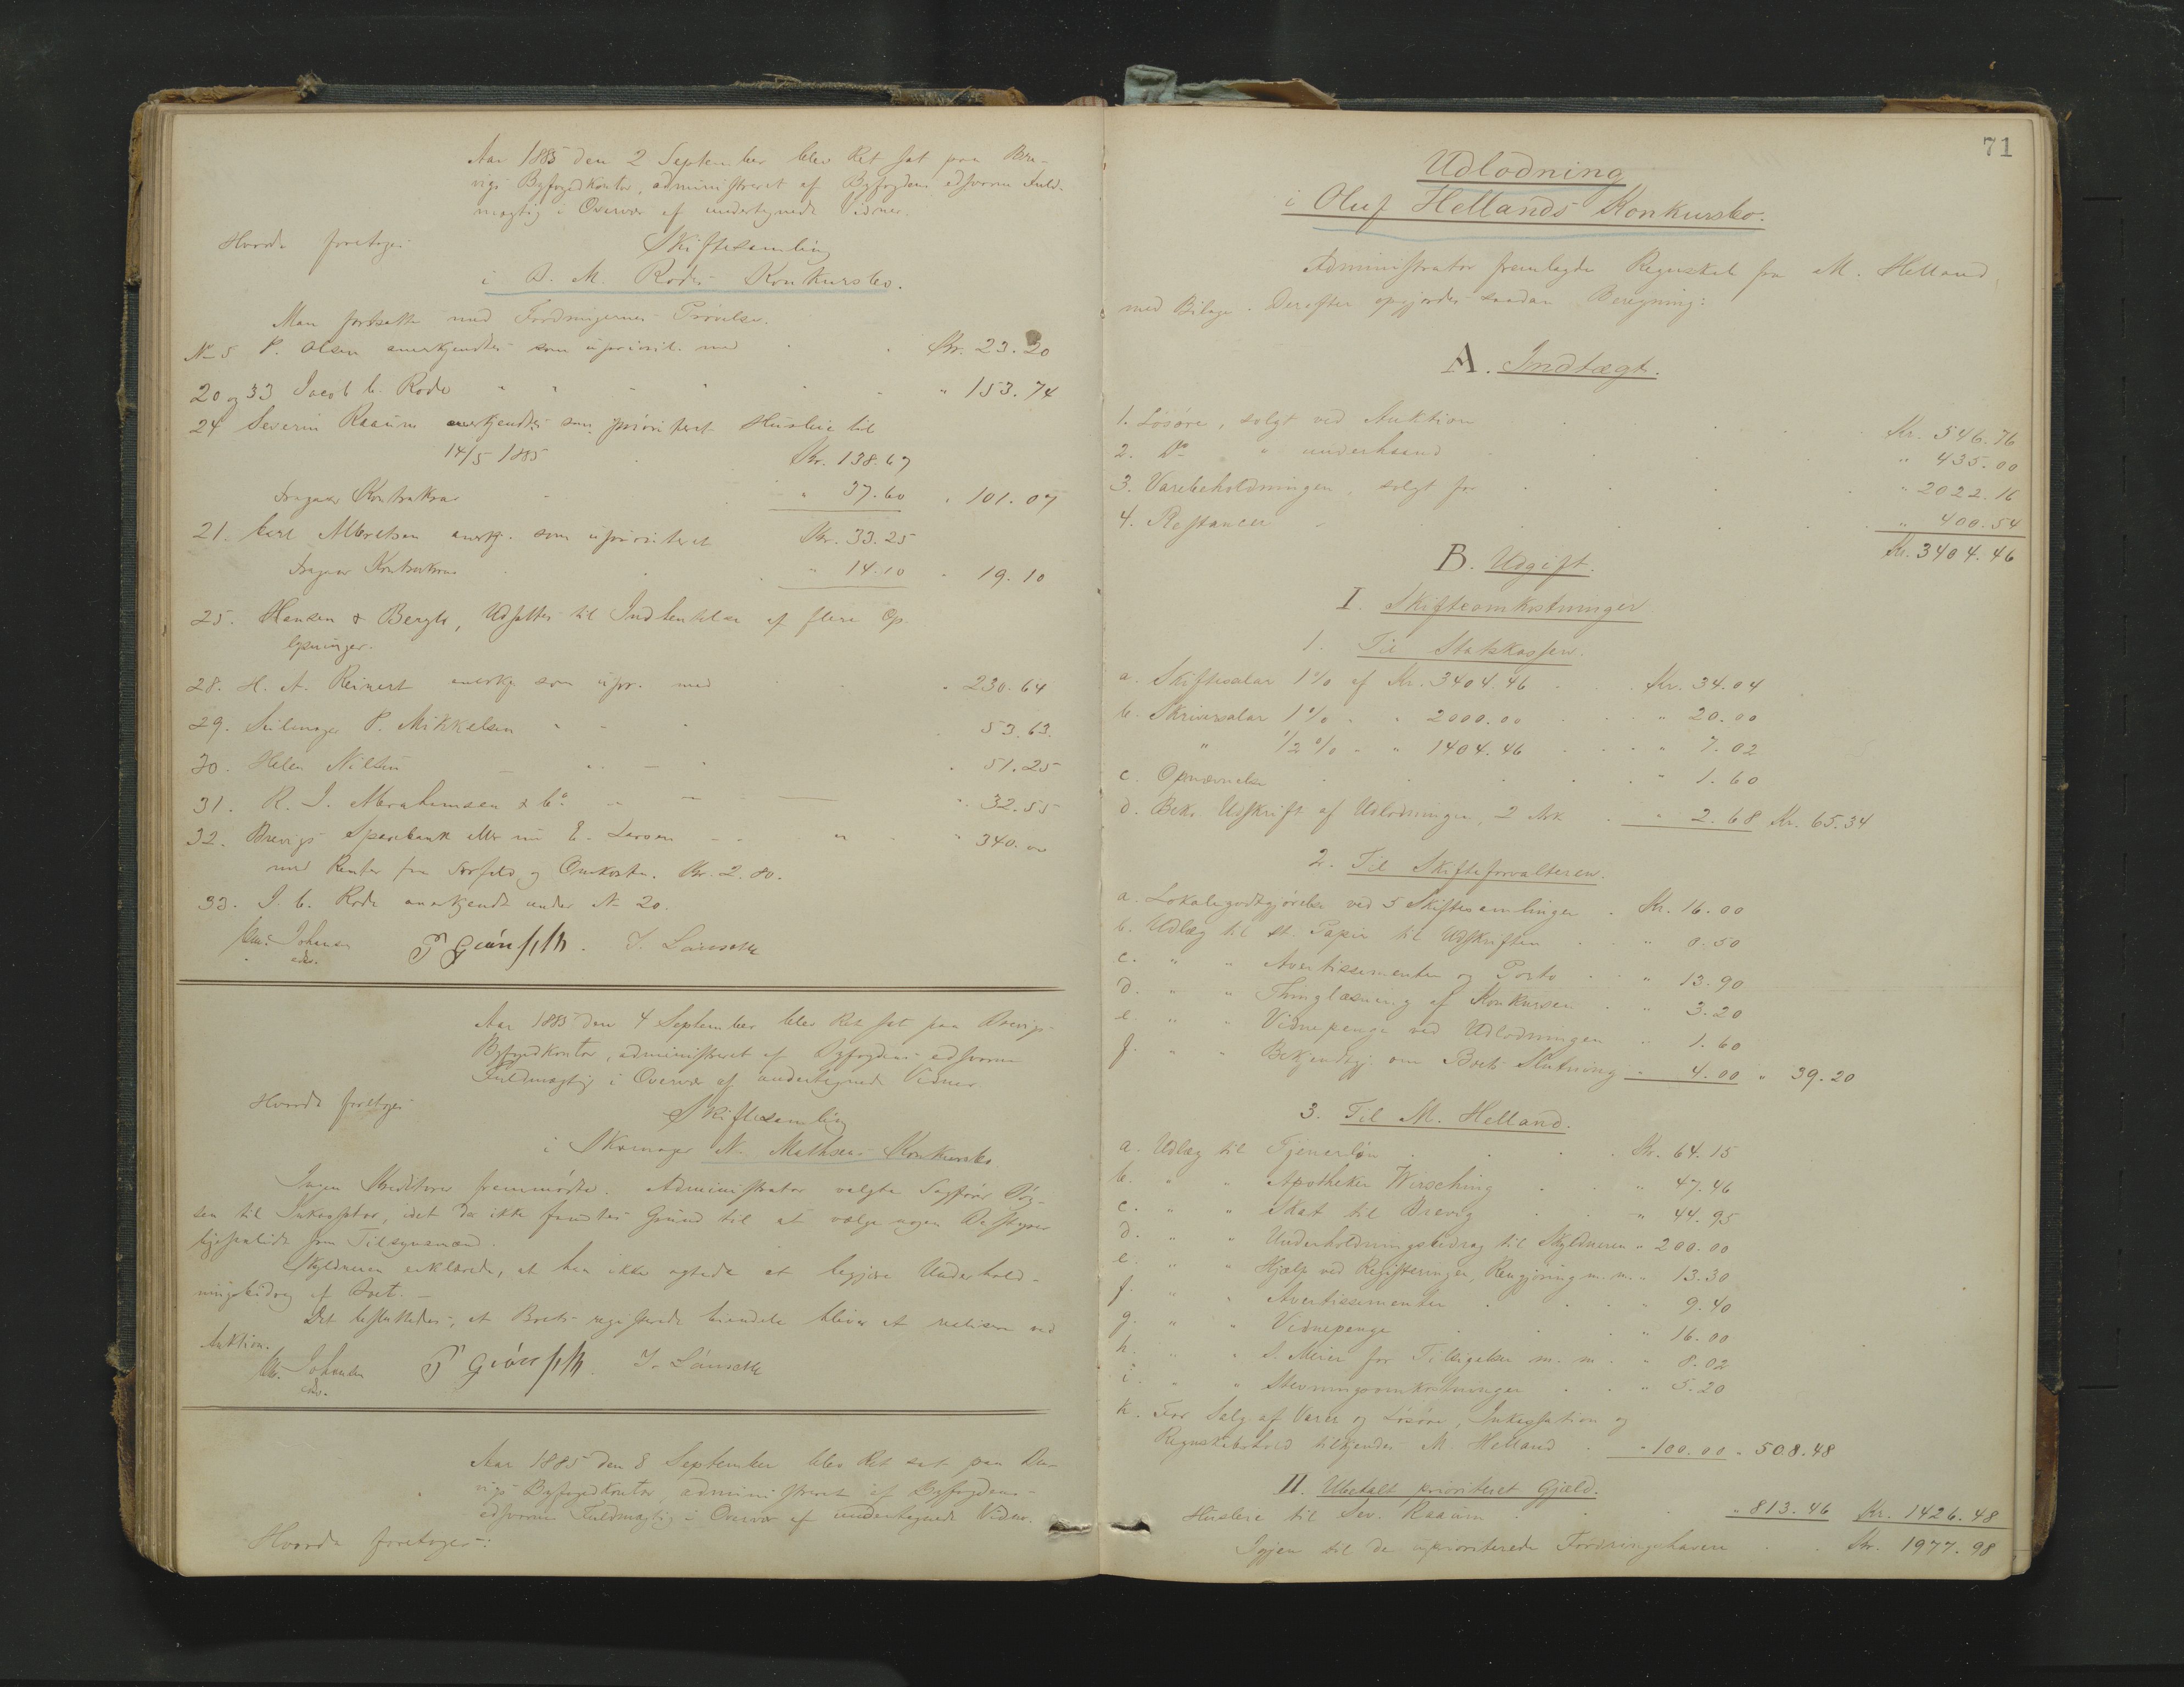 Aar 1885 den 2 September blev Ret sat paa Bre-
vigs Byfogedkontor, administreret af Byfogdens edsvorne Fuld-
mægtig i Overvær af undertegnede Vidner.
Hvorda foretoges
Skiftesamling
i D. M. Rodes Konkursbo.
Man fortsatte med Fordringernes Prövelse.
No 5 P. Olsen anerkjendtes som upriorit. med Kr. 23.20
20 og 33 Jacob C. Rode " " " " " 153.74
24 Severin Raaum anerkjendtes som prioriteret Husleie til
14/5 1885 Kr. 138.67
fragaar Kontrakrav " 37.60 " 101.07
21. Carl Albretsen anerkj. som uprioriteret Kr. 33.25
fragaar Kontrakrav " 14.10 " 19.10
25. Hansen & Bergh, Udsattes til Indhentelse af flere Op-
lysninger.
28. H. A. Reinert anerkj. som upr. med " 230.64
29. Seilmager P. Mikkelsen " " 53.63.
30. Helen Nilsen " " 51.25
31. R. J. Abrahamsen & Co. " " 32.55
32. Brevigs Sparebank eller nu E. Larsen " " 340.00
med Renter fra Forfald og Omkostn. Kr. 2.80.
33. J. C. Rode anerkjendt under No 20.
Chr. Johnsen
edsv.
J. Larsen
Aar 1885 den 4 September blev Ret sat paa Brevigs
Byfogedkontor, administreret af Byfogdens edsvorne
Fuldmægtig i Overvær af undertegnede Vidner
Hvorda foretoges
Skiftesamling
i Skomager N. Mathsens Konkursbo
Ingen Kreditorer fremmødte. Administrator valgte Sagförer
sen til Inkassator, idet der ikke fandtes Grund til at vælge nogen Bestyrer
ligesaalidt som Tilsynsmænd.
Skyldneren erklærede, at han ikke agtede at begjære Underhold-
ningsbidrag af Boet. -
Det besluttedes, at Boets registrerede Eiendele bliver at realisere ved
Auktion.
Chr. Johnsen
edsv.
J. Larsen
Aar 1885 den 8 September blev Ret sat paa Bre-
vigs Byfogedkontor, administreret af Byfogdens
edsvorne Fuldmægtig i Overvær af undertegnede Vidner.
Hvorda foretoges:
71
Udlodning
i Oluf Hellands Konkursbo.
Administrator fremlagde Regnskab fra M. Helland
med Bilage. Derefter opgjordes saadan Beregning:
A. Indtægt.
1. Lösöre, solgt ved Auktion Kr. 546.76
2. Do " underhaand " 435.00
3. Varebeholdningen, solgt for " 2022.16
4. Restancer " 400.54
Kr. 3404.46
B. Udgift.
I. Skifteomkostninger.
1. Til Statskassen.
a. Skiftesalar 1% af Kr. 3404.46 Kr. 34.04
b. Skriversalar 1% " " 2000.00 " 20.00
" 1/2% " " 1404.46 " 7.02
c. Opnævnelse " 1.60
d. Bekr. Udskrift af Udlodningen, 2 Ark " 2.68 Kr. 65.34
2. Til Skifteforvalteren.
a. Lokalegodtgjörelse ved 5 Skiftesamlinger Kr. 16.00
b. Udlæg til st. Papir til Udskriften " 0.50
c. " " Avertissementer og Porto " 13.90
d. " " Thinglæsning af Konkursen " 3.20
e. " " Vidnepenge ved Udlodningen " 1.60
f. " " Bekjendtgj. om Boets Slutning " 4.00 " 39.20
3. Til M. Helland.
a. Udlæg til Tjenerlön Kr. 64.15
b. " " Apotheker Wirsching " 47.46
c. " " Skat til Brevig " 44.95
d. " " Underholdningsbidrag til Skyldneren " 200.00
e. " " Hjælp ved Registreringen, Rengjöring m. m. " 13.30
f. " " Avertissementer " 9.40
g. " " Vidnepenge " 16.00
h. " " S. Meier for Tilsigelser m. m. " 8.02
i. " " Stevningsomkostninger " 5.20
k. For Salg af Varer og Lösöre, Inkassation og
Regnskabshold tilkjendes M. Helland " 100.00 " 508.48
II. Ubetalt prioriteret Gjæld.
Husleie til Sev. Raaum " 813.46 Kr. 1426.48
Igjen til de uprioriterede Fordringshavere Kr. 1977.98